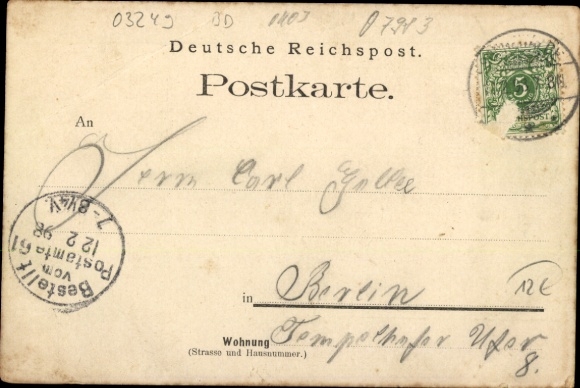 03249 BD
Deutsche Reichspost.
Postkarte.
5
An
Herrn Carl
Bestellt
vom
Postamte 61
12 2 98
7-8¼V.
in Berlin
12€
Wohnung Tempelhofer Ufer
(Strasse und Hausnummer.)
8.